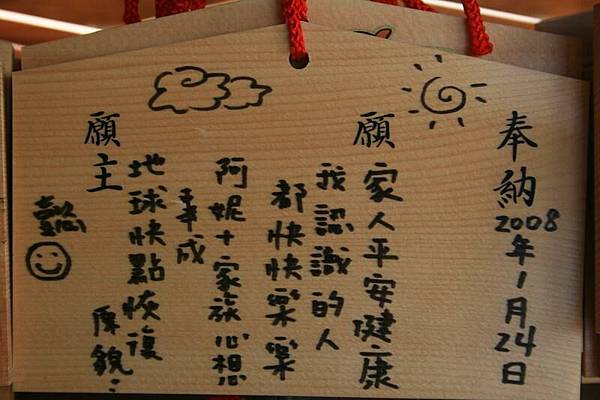 奉納2008年1月24日
願家人平安健康
我認識的人
都快快樂樂
阿妮+家族心想
事成
地球快點恢復
原貌:
願主
懿